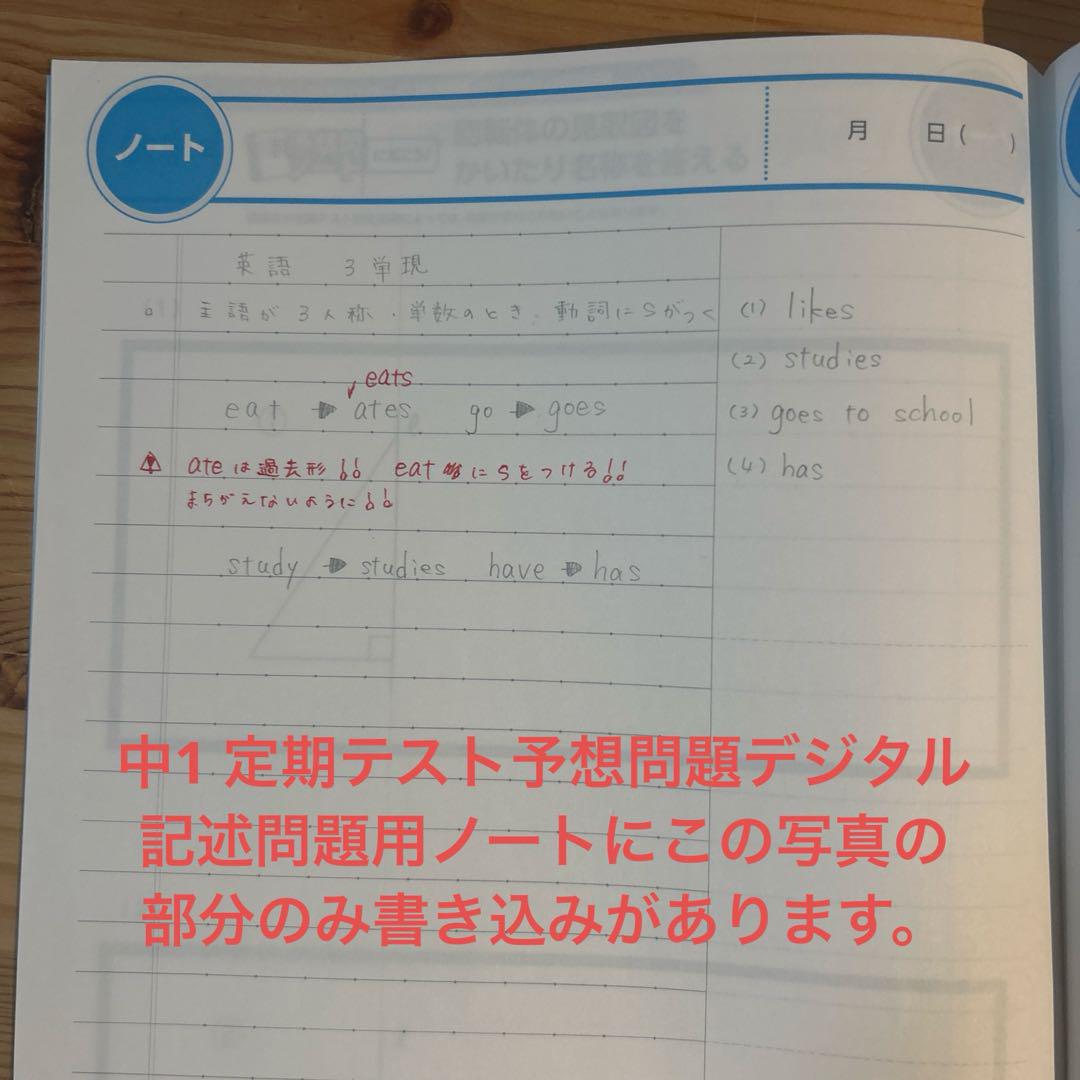 ノート
月 日( )
英語 3単現
主語が3人称・単数のとき、動詞にsがつく
eats
eat → ates go → goes
ateは過去形!! eatにsをつける!!
まちがえないように!!
study → studies have → has
(1) likes
(2) studies
(3) goes to school
(4) has
中1 定期テスト予想問題デジタル
記述問題用ノートにこの写真の
部分のみ書き込みがあります。